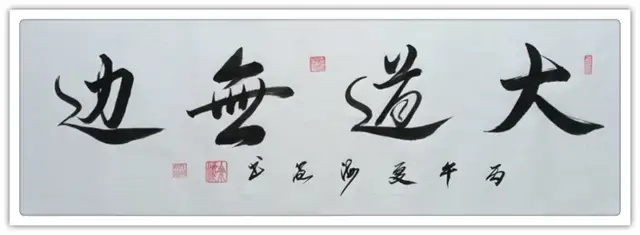 大道無边
丙午夏